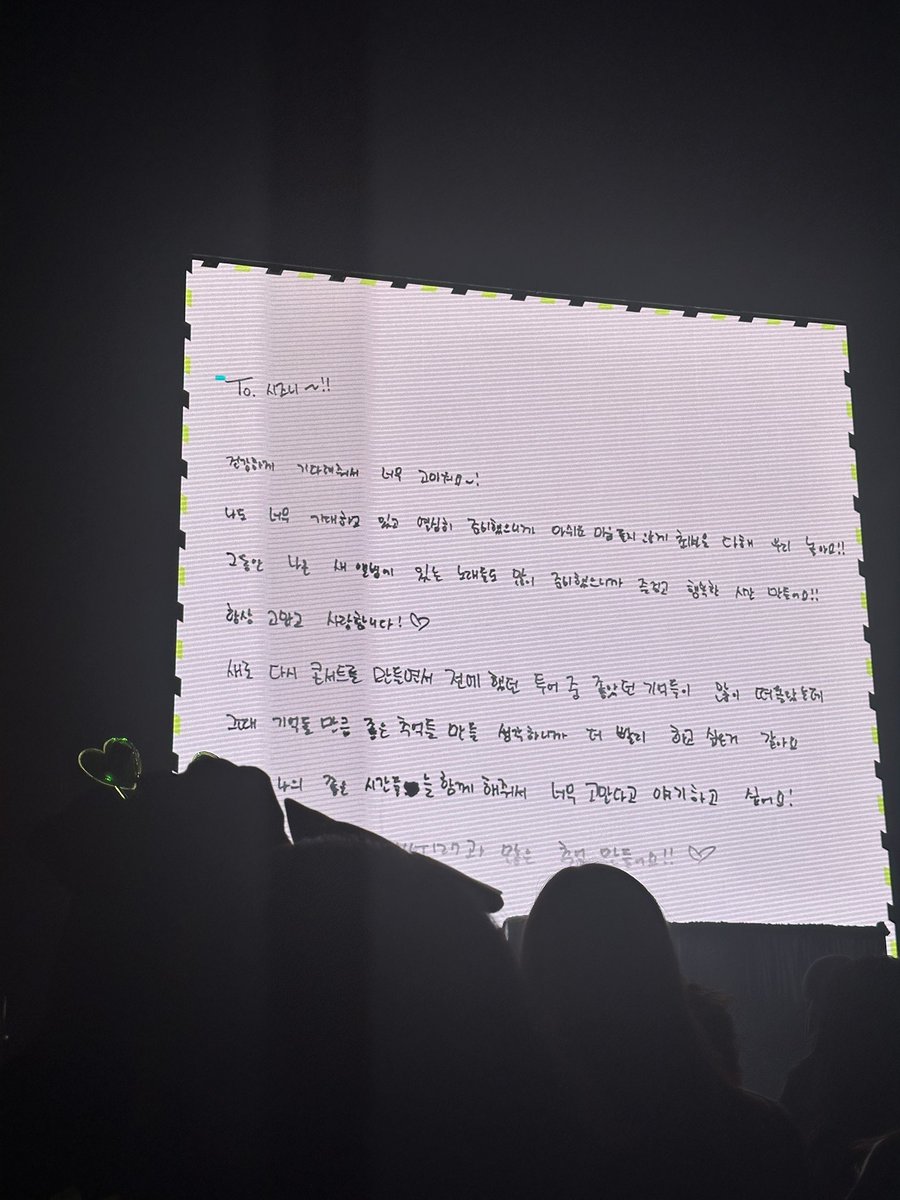 To. 시즈니~!!
건강하게 기다려줘서 너무 고마워요~!
나도 너무 기대하고 있고 열심히 준비했으니까 아쉬운 마음 들지 않게 최선을 다해 우리 놀아요!!
그동안 나온 새 앨범에 있는 노래들도 많이 준비했으니까 즐겁고 행복한 시간 만들어요!!
항상 고맙고 사랑합니다! ♡
새로 다시 콘서트를 만들면서 전에 했던 투어 중 좋았던 기억들이 많이 떠올랐는데
그때 기억들 만큼 좋은 추억들 만들 생각하니까 더 빨리 하고 싶은거 같아요
좋은 시간들을 함께 해줘서 너무 고맙다고 얘기하고 싶어요!
127과 많은 추억 만들어요!! ♡